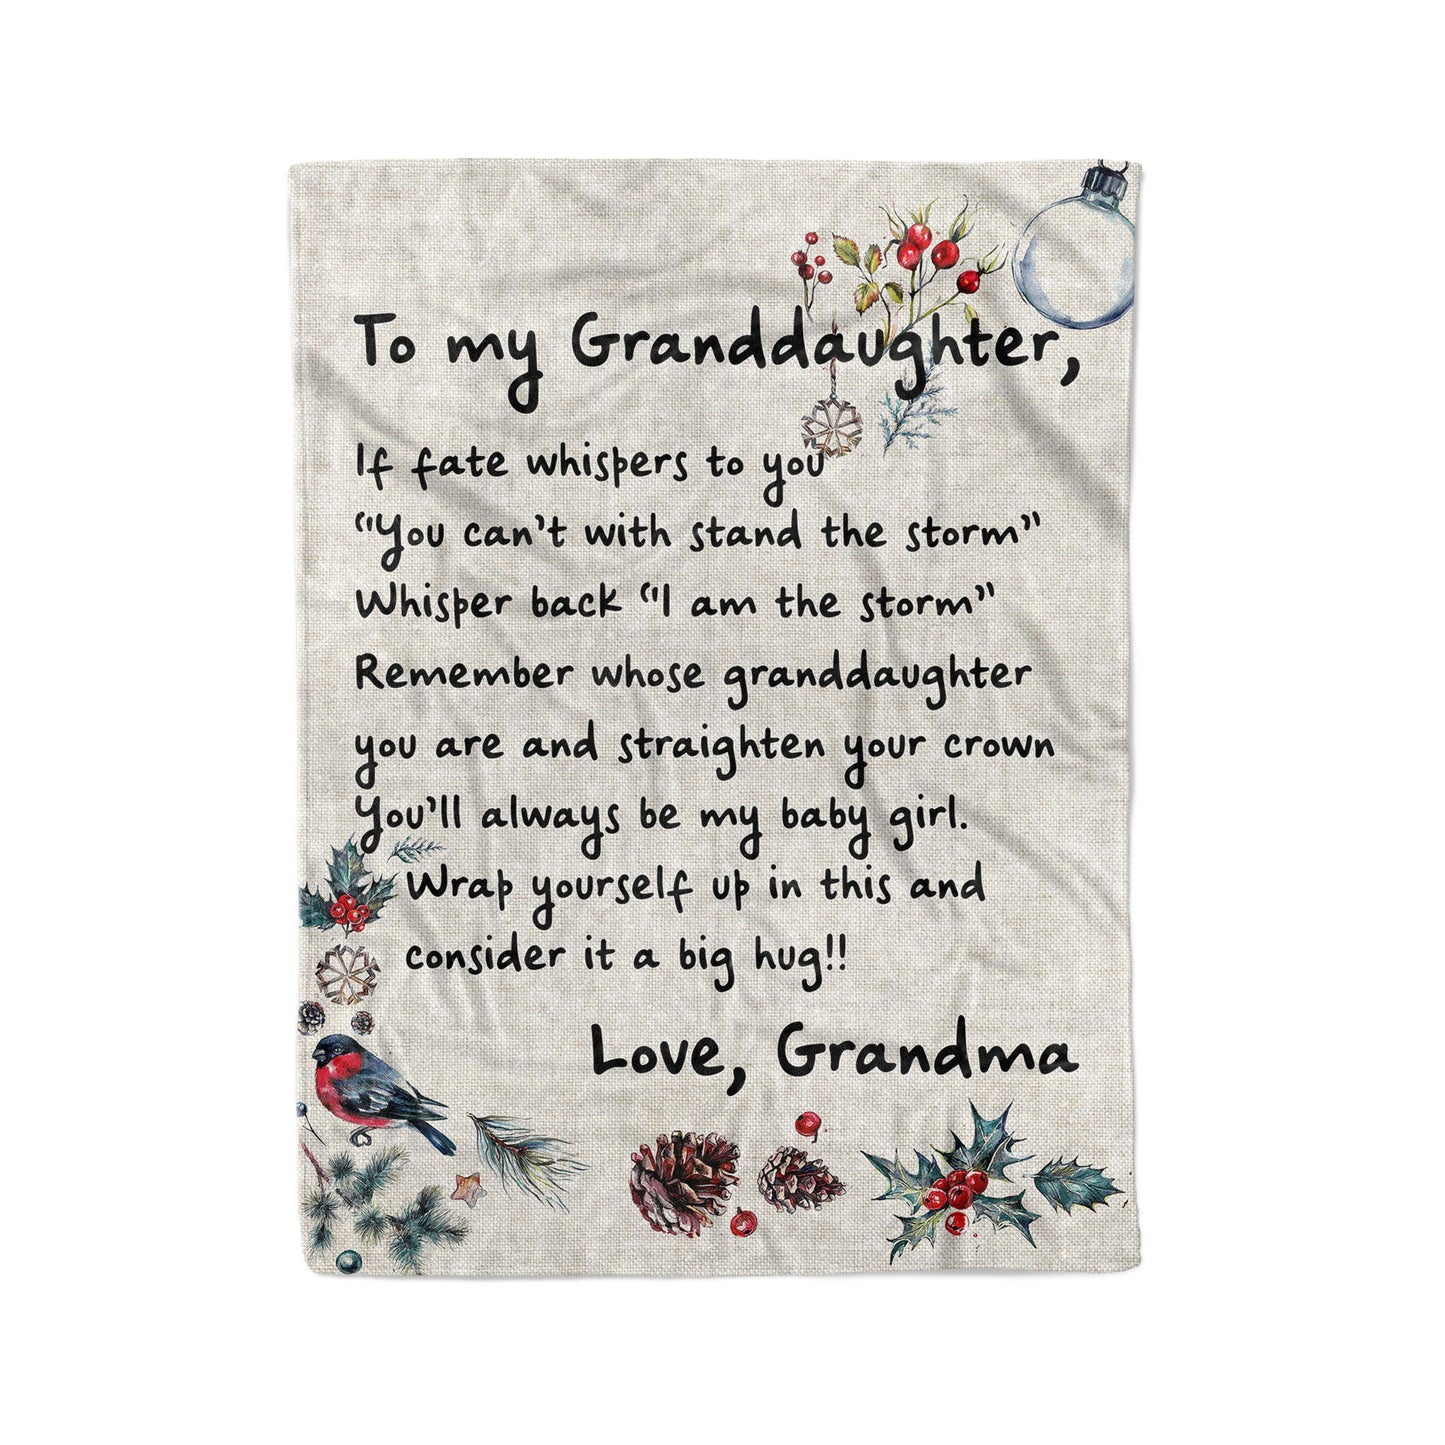 To my Granddaughter,
If fate whispers to you
“You can’t with stand the storm”
Whisper back “I am the storm”
Remember whose granddaughter
you are and straighten your crown
You’ll always be my baby girl.
Wrap yourself up in this and
consider it a big hug!!
Love, Grandma